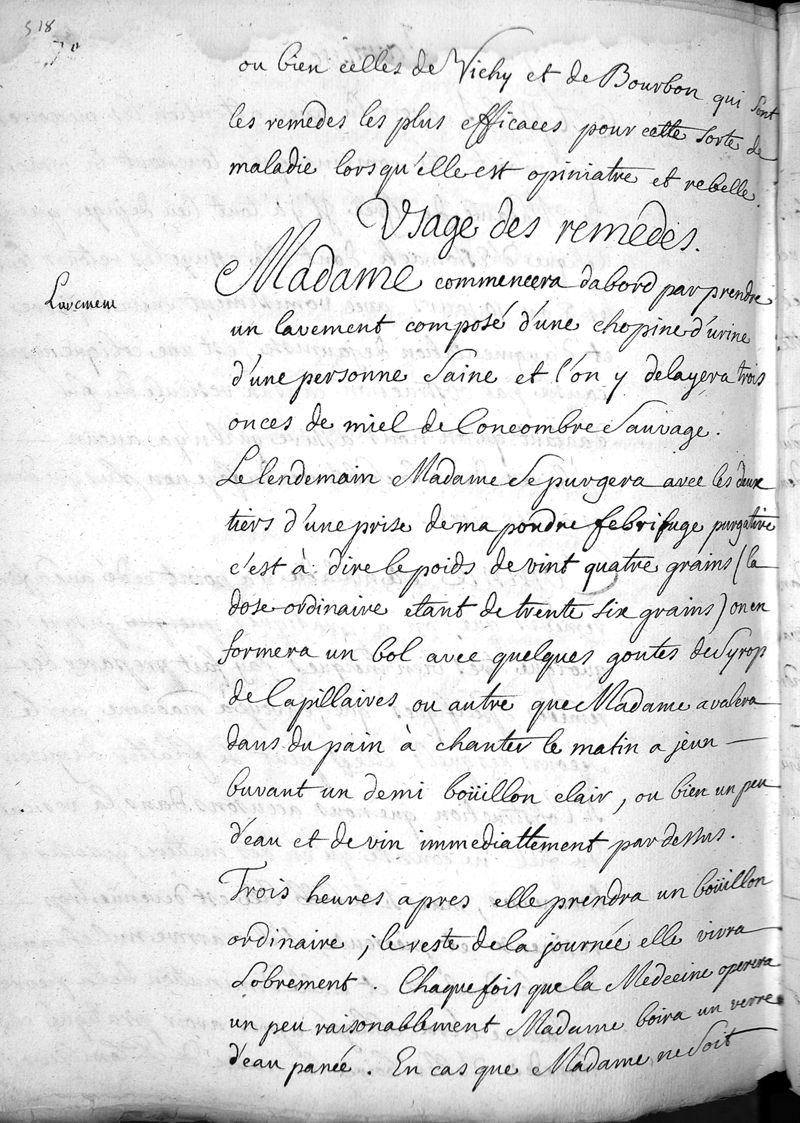 518
70
ou bien celles de Vichy et de Bourbon qui sont
les remedes les plus efficaces pour cette sorte de
maladie lorsqu'elle est opiniatre et rebelle.
Usage des remedes.
Lavement
Madame commencera dabord par prendre
un lavement composé d'une chopine d'urine
d'une personne saine et l'on y delayera trois
onces de miel de Concombre Sauvage.
Le lendemain Madame se purgera avec les deux
tiers d'une prise de ma poudre febrifuge purgative
c'est à dire le poids de vint quatre grains (la
dose ordinaire etant de trente six grains) on en
formera un bol avec quelques goutes de Syrop
de Capillaires ou autre que Madame avalera
dans du pain à chanter le matin a jeun —
buvant un demi boüillon clair, ou bien un peu
d'eau et de vin immediattement par dessus.
Trois heures apres elle prendra un boüillon
ordinaire ; le reste de la journée elle vivra
Sobrement. Chaque fois que la Medecine operera
un peu raisonablement Madame boira un verre
d'eau panée. En cas que Madame ne Soit